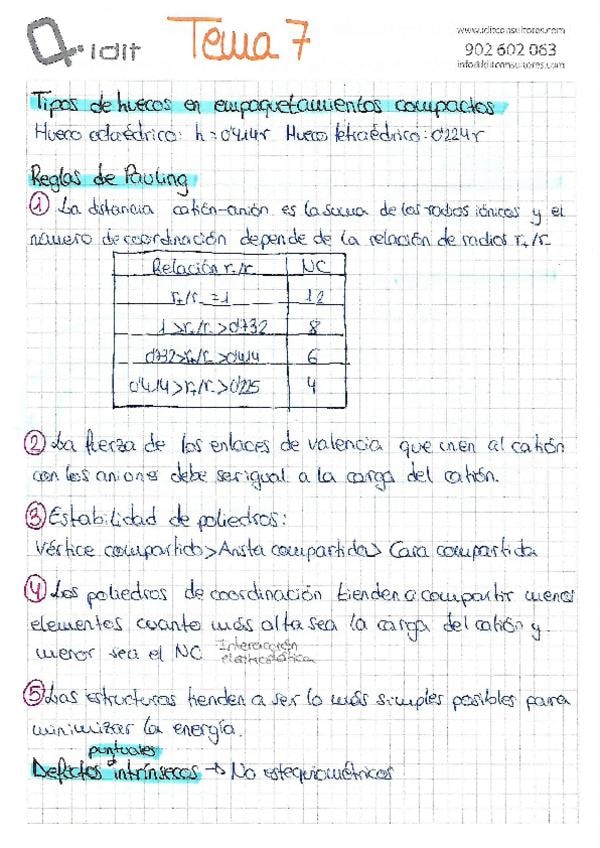 idit
Tema 7
www.iditconsultores.com
902 602 063
info@iditconsultores.com
Tipos de huecos en empaquetamientos compactos
Hueco octaédrico: h = 0'414r Hueco tetraédrico: 0'224r
Reglas de Pauling
① La distancia catión-anión es la suma de los radios iónicos y el
número de coordinación depende de la relación de radios r+/r-
Relación r+/r- NC
r+/r- = 1 12
1 > r+/r- > 0'732 8
0'732 > r+/r- > 0'414 6
0'414 > r+/r- > 0'225 4
② La fuerza de los enlaces de valencia que unen al catión
con los aniones debe ser igual a la carga del catión.
③ Estabilidad de poliedros:
Vértice compartido > Arista compartida > Cara compartida
④ Los poliedros de coordinación tienden a compartir menos
elementos cuanto más alta sea la carga del catión y
menor sea el NC Interacción
electrostática
⑤ Las estructuras tienden a ser lo más simples posibles para
minimizar la energía.
puntuales
Defectos intrínsecos → No estequiométricos